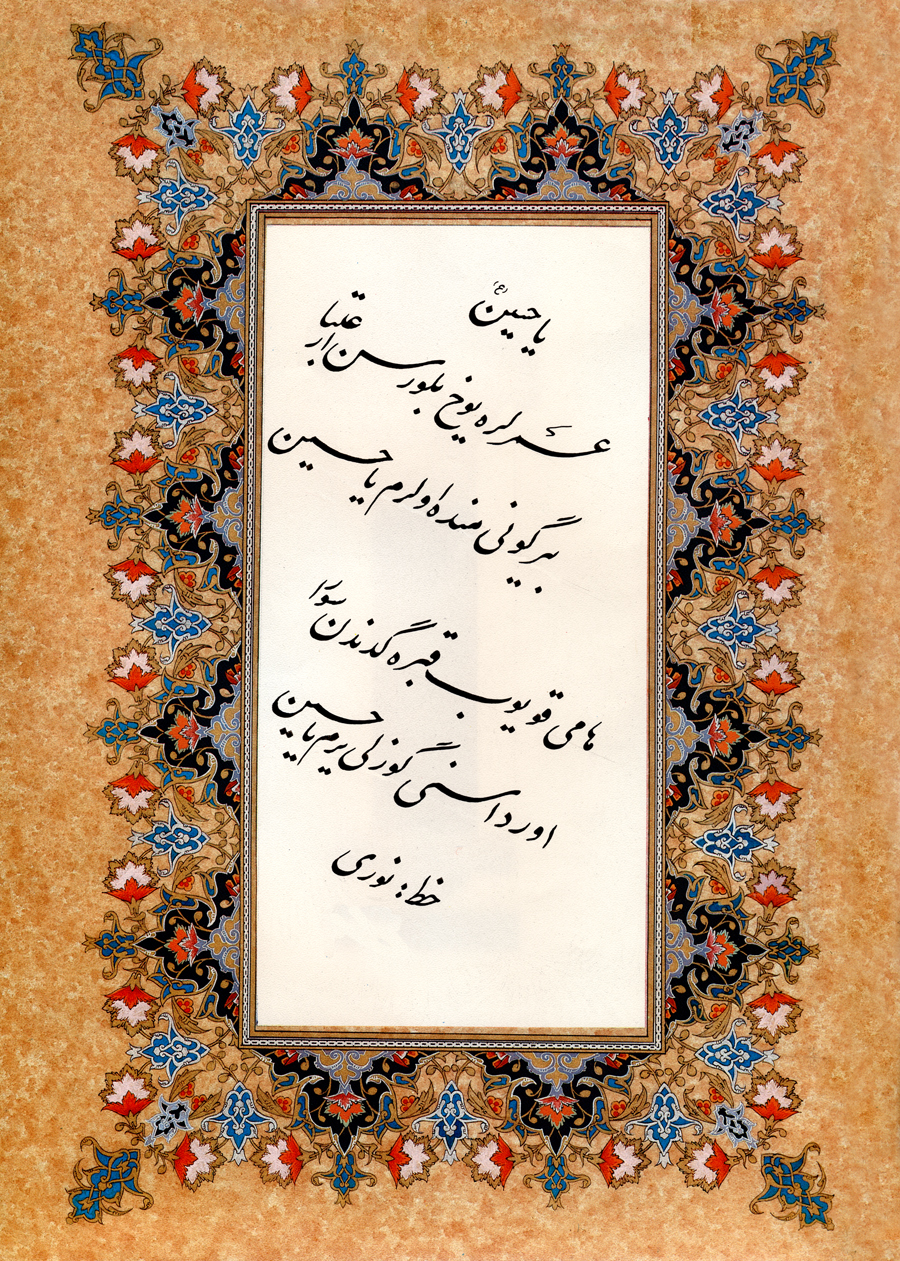 یا حسین (ع)
عمر لره یوخ بلورسن اعتبار
بیر گونی منده اولرم یا حسین
هامی قویوب قبره گدندن سورا
اوردا سنی گوزلی یرم یا حسین
خط: نوری